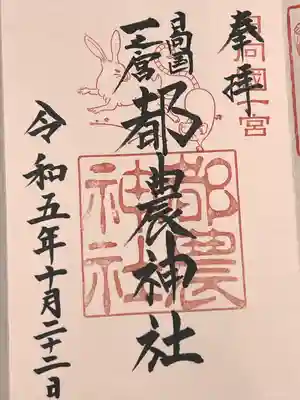 奉拝
日向國一宮
日向国
一之宮
都農神社
都農
神社
令和五年十月二十二日